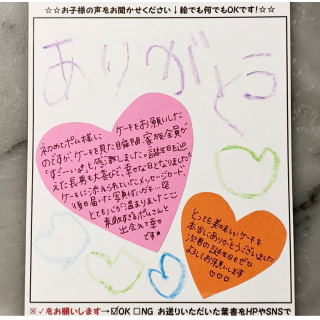 ☆☆お子様の声をお聞かせください↓絵でも何でもOKです!☆☆
ありがとう
初めてポム様に ケーキをお願いした
のですが、ケーキを見た瞬間、家族全員が
「すご〜い!!」と感激しました。誕生日を迎
えた長男も大喜びで、幸せな日となりました
ケーキに添えられていたメッセージカード、
後日届いた写真付ハガキ…
とても心が温まりました
素敵すぎるポムさんと
出会えて幸せ
です
とっても美味しいケーキを
本当にありがとうございました
次男の誕生日もぜひ
よろしくお願いします
♡♡♡
※✓をお願いします→☑OK ☐NG お送りいただいた葉書をHPやSNSで